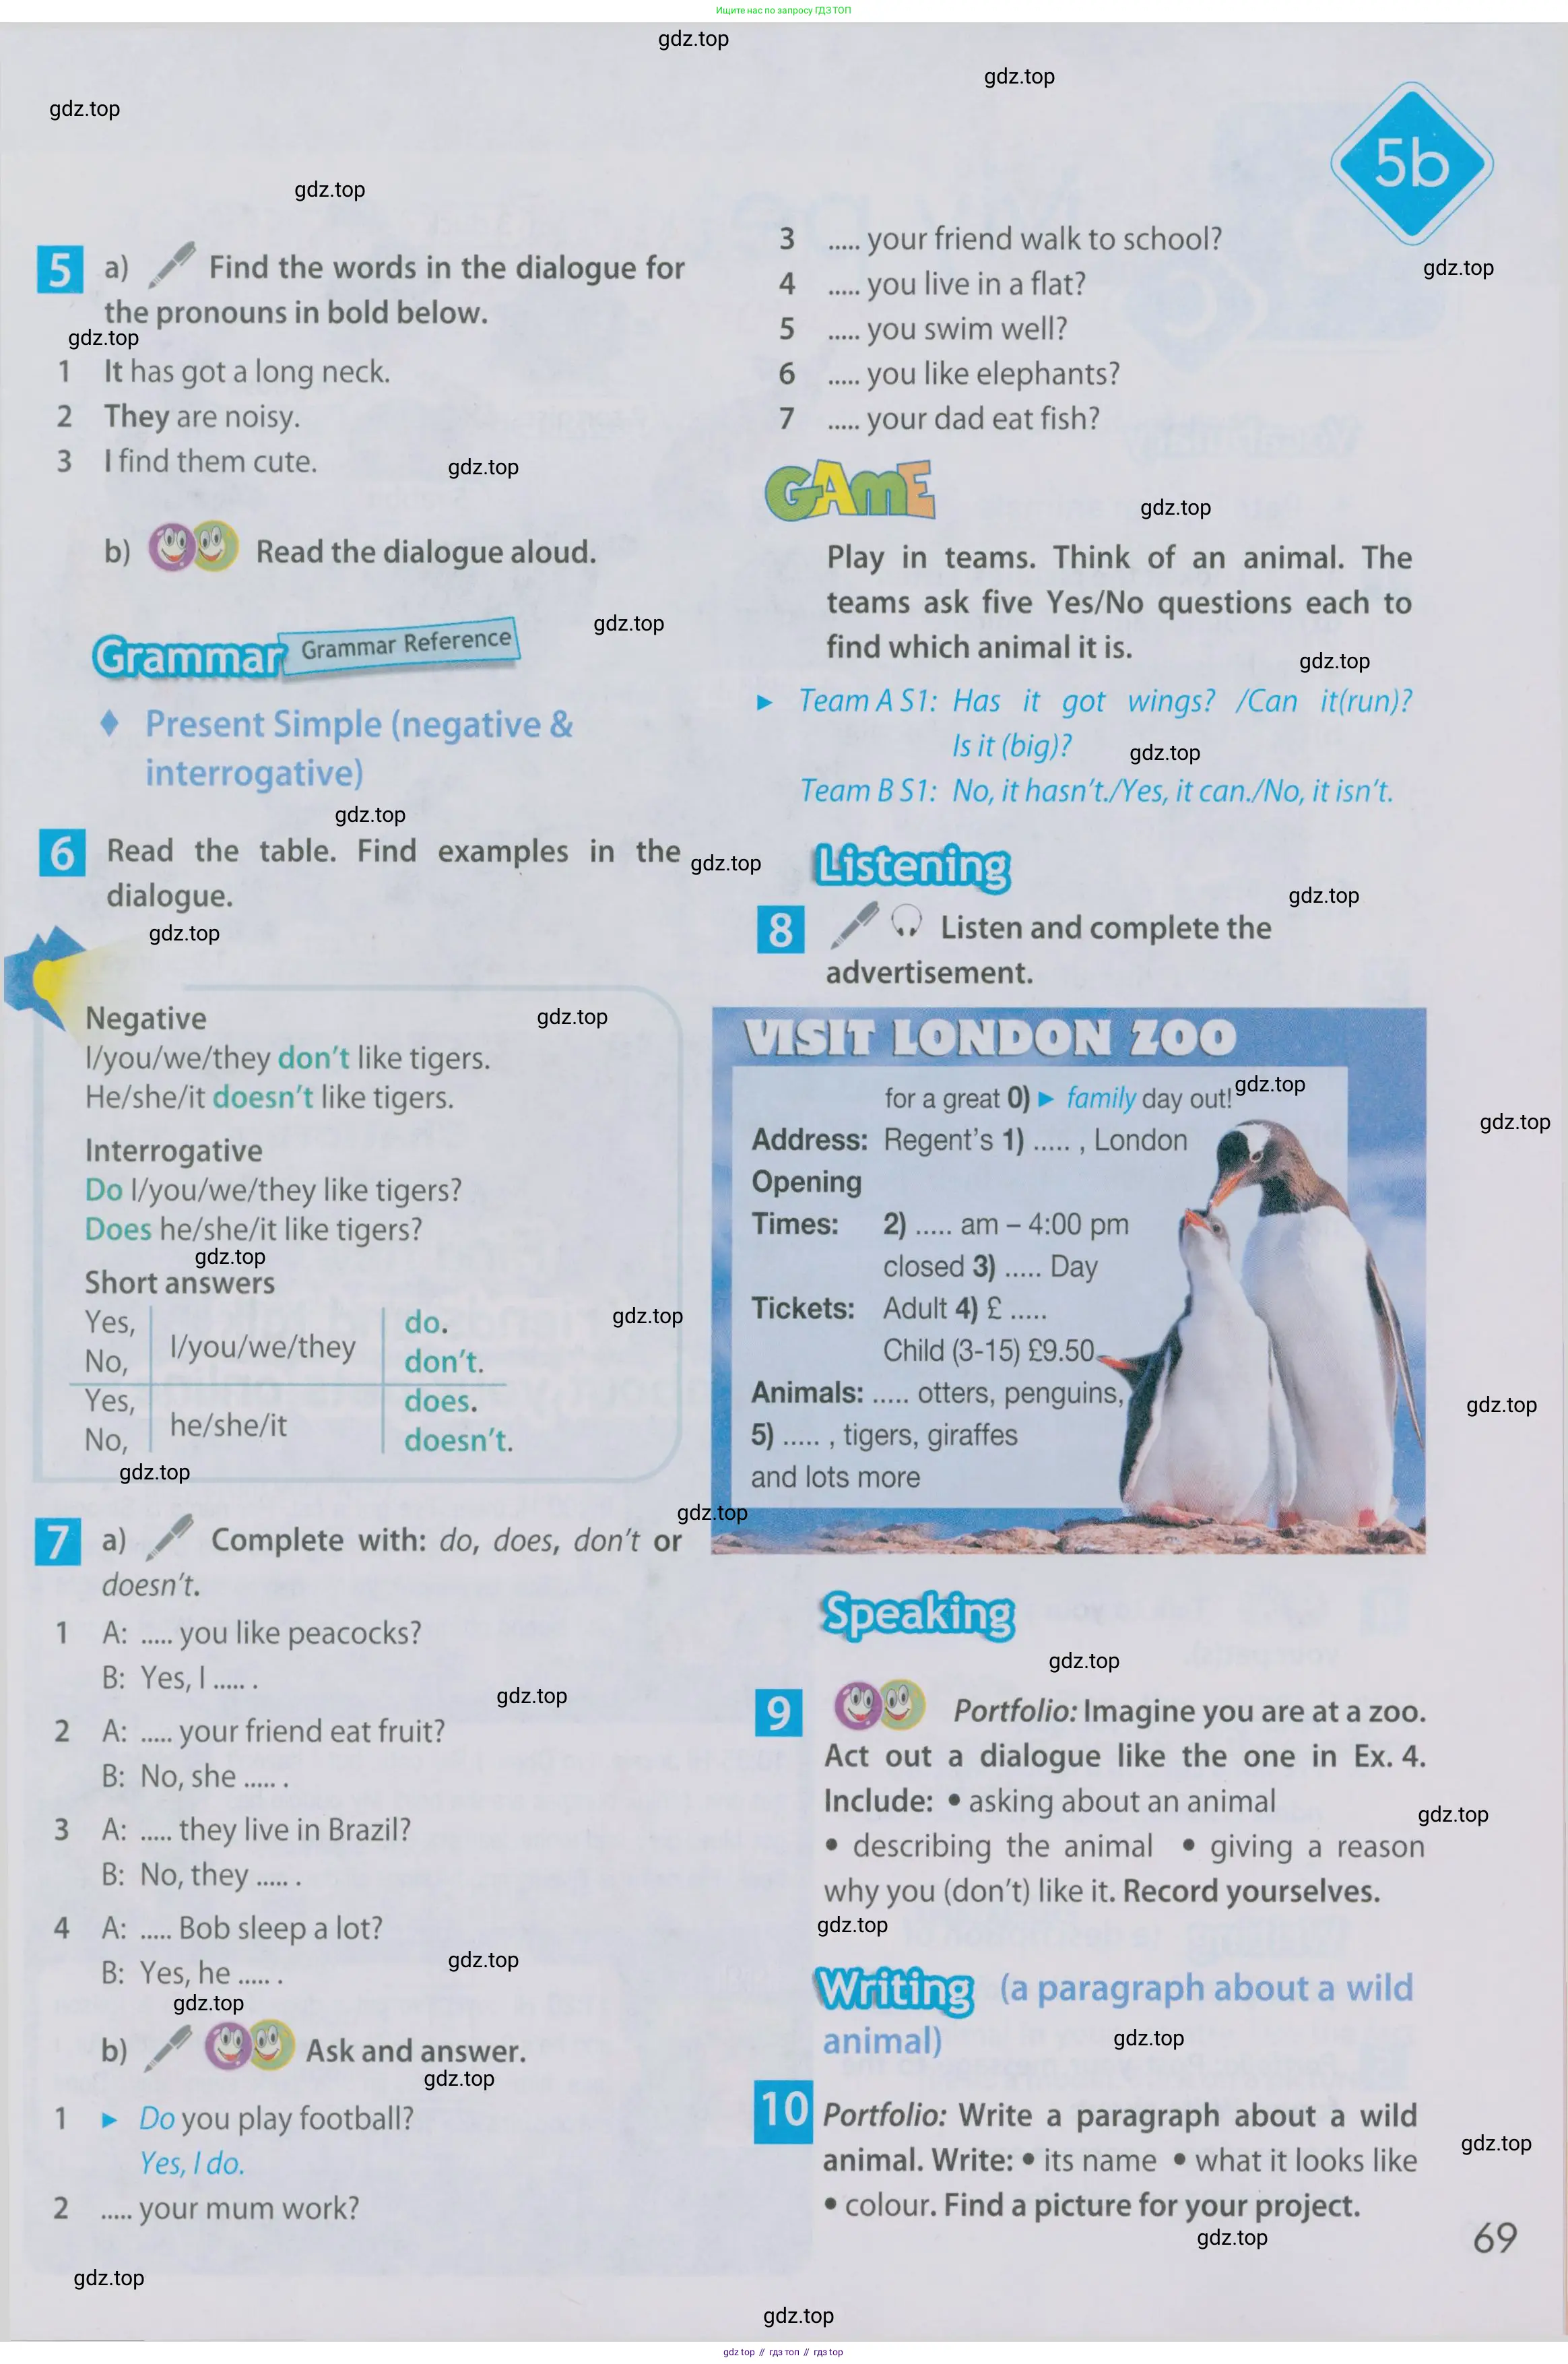 Ищите нас по запросу ГДЗ ТОП
gdz.top
gdz.top
gdz.top
5b
gdz.top
gdz.top
5 a) Find the words in the dialogue for
the pronouns in bold below.
gdz.top
1 It has got a long neck.
2 They are noisy.
3 I find them cute.
gdz.top
b) Read the dialogue aloud.
gdz.top
Grammar Grammar Reference
♦ Present Simple (negative &
interrogative)
gdz.top
6 Read the table. Find examples in the
dialogue.
gdz.top
gdz.top
Negative
gdz.top
I/you/we/they don't like tigers.
He/she/it doesn't like tigers.
Interrogative
Do I/you/we/they like tigers?
Does he/she/it like tigers?
gdz.top
Short answers
gdz.top
Yes, I/you/we/they do.
No, don't.
Yes, he/she/it does.
No, doesn't.
gdz.top
gdz.top
7 a) Complete with: do, does, don't or
doesn't.
1 A: ..... you like peacocks?
B: Yes, I ..... .
gdz.top
2 A: ..... your friend eat fruit?
B: No, she ..... .
3 A: ..... they live in Brazil?
B: No, they ..... .
4 A: ..... Bob sleep a lot?
B: Yes, he ..... .
gdz.top
gdz.top
b) Ask and answer.
gdz.top
1 ► Do you play football?
Yes, I do.
2 ..... your mum work?
gdz.top
3 ..... your friend walk to school?
4 ..... you live in a flat?
5 ..... you swim well?
6 ..... you like elephants?
7 ..... your dad eat fish?
GAME
gdz.top
Play in teams. Think of an animal. The
teams ask five Yes/No questions each to
find which animal it is.
gdz.top
► Team A S1: Has it got wings? /Can it(run)?
Is it (big)?
gdz.top
Team B S1: No, it hasn't./Yes, it can./No, it isn't.
Listening
gdz.top
8 Listen and complete the
advertisement.
VISIT LONDON ZOO
gdz.top
for a great 0) ► family day out!
gdz.top
Address: Regent's 1) ..... , London
Opening
Times: 2) ..... am – 4:00 pm
closed 3) ..... Day
Tickets: Adult 4) £ .....
Child (3-15) £9.50
Animals: ..... otters, penguins,
gdz.top
5) ..... , tigers, giraffes
and lots more
Speaking
gdz.top
9 Portfolio: Imagine you are at a zoo.
Act out a dialogue like the one in Ex. 4.
Include: • asking about an animal
gdz.top
• describing the animal • giving a reason
why you (don't) like it. Record yourselves.
gdz.top
Writing (a paragraph about a wild
animal)
gdz.top
10 Portfolio: Write a paragraph about a wild
gdz.top
animal. Write: • its name • what it looks like
• colour. Find a picture for your project.
gdz.top
69
gdz.top
gdz top // гдз топ // гдз top